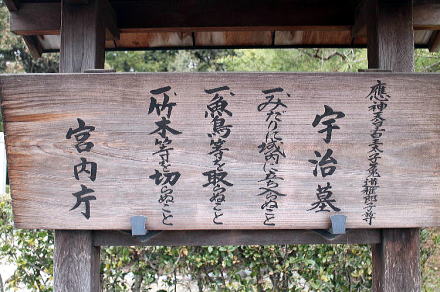 應神天皇皇太子菟道稚郎子尊
宇治墓
一みだりに域内に立ち入らぬこと
一魚鳥等を取らぬこと
一竹木等を切らぬこと
宮内庁